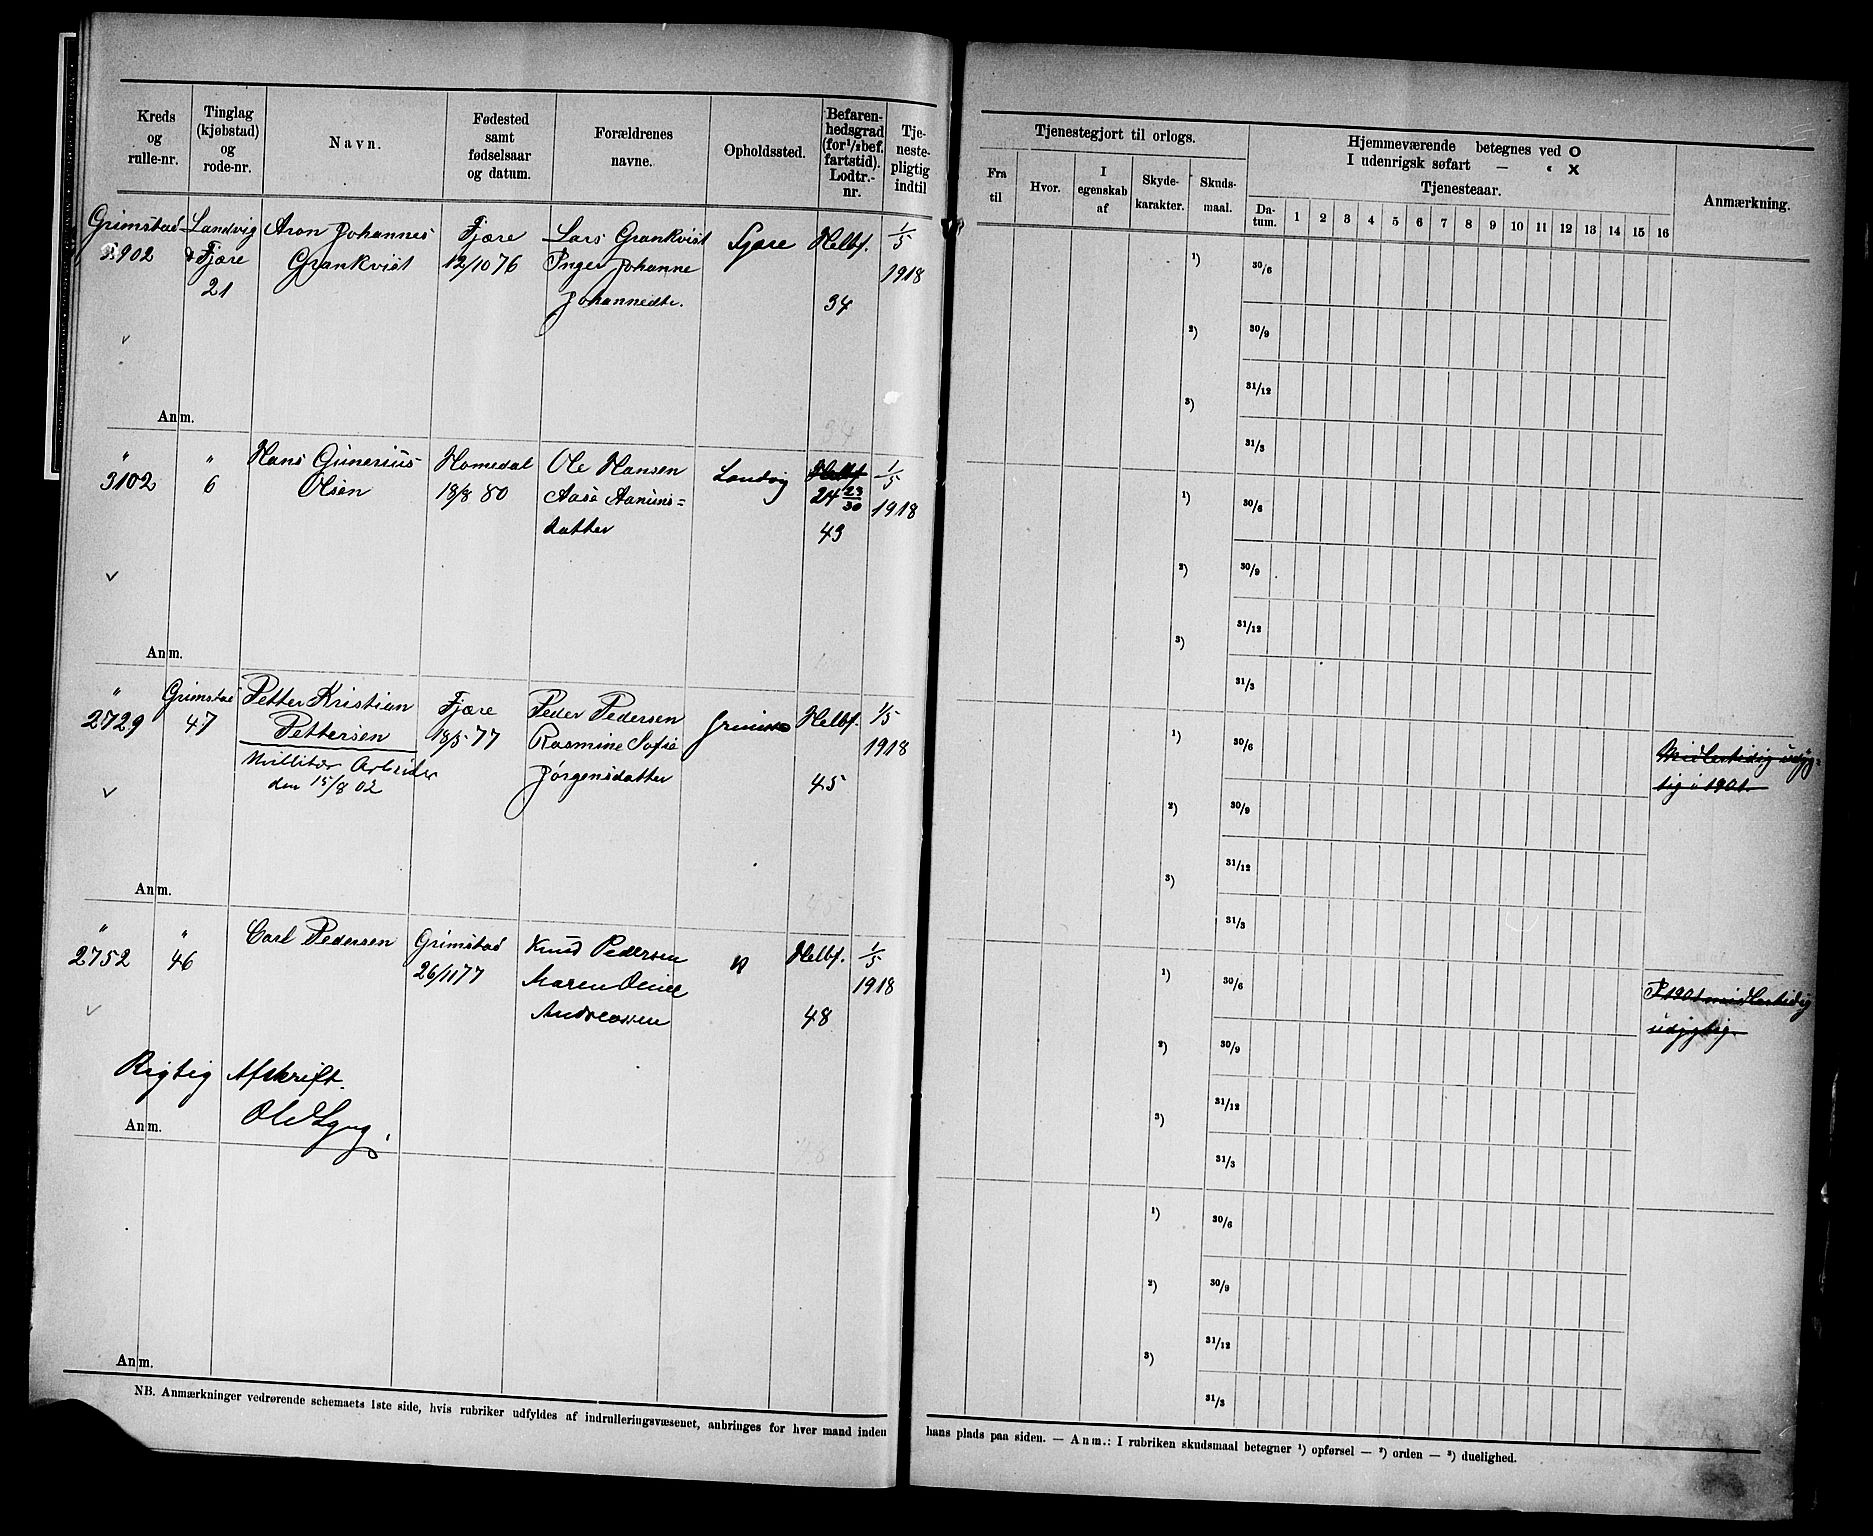 Kreds og rulle-nr.
Tinglag (kjøbstad) og rode-nr.
Navn.
Fødested samt fødselsaar og datum.
Forældrenes navne.
Opholdssted.
Befaren-hedsgrad (for 1/2 bef. fartstid). Lodtr.-nr.
Tje-neste-pligtig indtil
Grimstad Landvig Aron Johannes Fjære Lars Grankvist Fjære Helbf. 1/5
3902 & Fjære Grankvist 12/10 76 Inger Johanne 1918
21 Johannedtr. 34
Anm.
" " Hans Gunerius Homedal Ole Hansen Landvig Helbf. 1/5
3102 6 Olsen 18/8 80 Aase Aanuns= 24 23/30 1918
datter 43
Anm.
" Grimstad Petter Kristian Fjære Peder Pedersen Grimstad Helbf. 1/5
2729 47 Pettersen 18/5 77 Rasmine Sofie 1918
Millitær Arbeider Jørgensdatter 45
den 15/8 02
Anm.
" " Carl Pedersen Grimstad Knud Pedersen " Helbf. 1/5
2752 46 26/11 77 Maren 1918
Andreassen 48
Rigtig Afskrift.
Anm.
Anm.
NB. Anmærkninger vedrørende schemaets 1ste side, hvis rubriker udfyldes af indrulleringsvæsenet, anbringes for hver mand inden
Tjenestegjort til orlogs.
Hjemmeværende betegnes ved O
I udenrigsk søfart — " X
Tjenesteaar.
Anmærkning.
Fra til
Hvor.
I egenskab af
Skyde-karakter.
Skuds-maal.
Da-tum. 1 2 3 4 5 6 7 8 9 10 11 12 13 14 15 16
1) 30/6
2) 30/9
3) 31/12
31/3
1) 30/6
2) 30/9
3) 31/12
31/3
1) 30/6 Midlertidig udyg=
tig i 1901.
2) 30/9
3) 31/12
31/3
1) 30/6 I 1901 midlertidig
udygtig.
2) 30/9
3) 31/12
31/3
1) 30/6
2) 30/9
3) 31/12
31/3
hans plads paa siden. — Anm.: I rubriken skudsmaal betegner 1) opførsel — 2) orden — 3) duelighed.